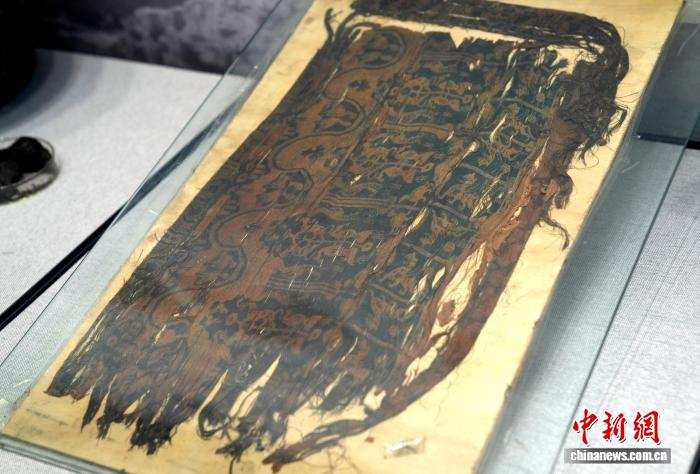 中新網
www.
chinanews.com.cn